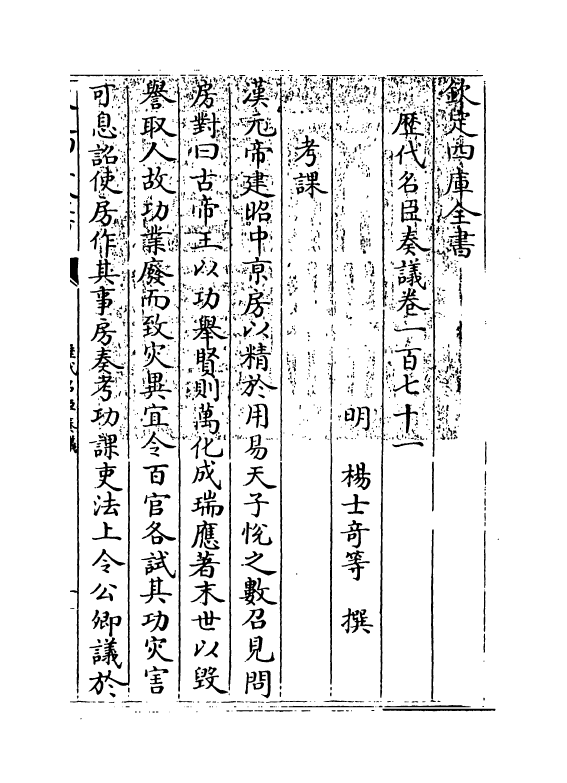 欽定四庫全書
歷代名臣奏議卷一百七十一
明 楊士奇等 撰
考課
漢元帝建昭中京房以精於用易天子悅之數召見問
房對曰古帝王以功舉賢則萬化成瑞應著末世以毀
譽取人故功業廢而致灾異宜令百官各試其功灾害
可息詔使房作其事房奏考功課吏法上令公卿議於
歷代名臣奏議